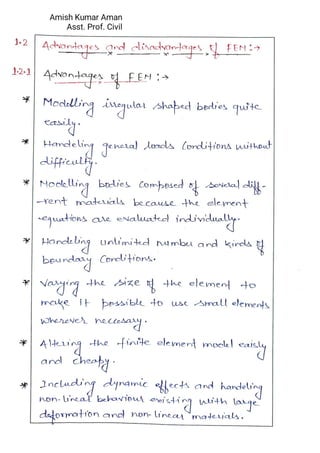 Amish Kumar Aman
Asst. Prof. Civil
1.2 Advantages and disadvantages of FEM :→
1.2.1 Advantages of FEM :→
* Modelling irregular shaped bodies quite
easily.
* Handeling general loads Conditions without
difficulty.
* Modelling bodies Composed of several diff-
-rent materials because the element
-equations are evaluated individually.
* Handeling unlimited number and kinds of
boundary Conditions.
* Varying the size of the element to
make it possible to use small elements
wherever neccesary.
* Altering the finite element model eaisly
and cheaply.
* Including dynamic effects and handeling
non-lineat behavious existing with large
deformation and non-linear materials.